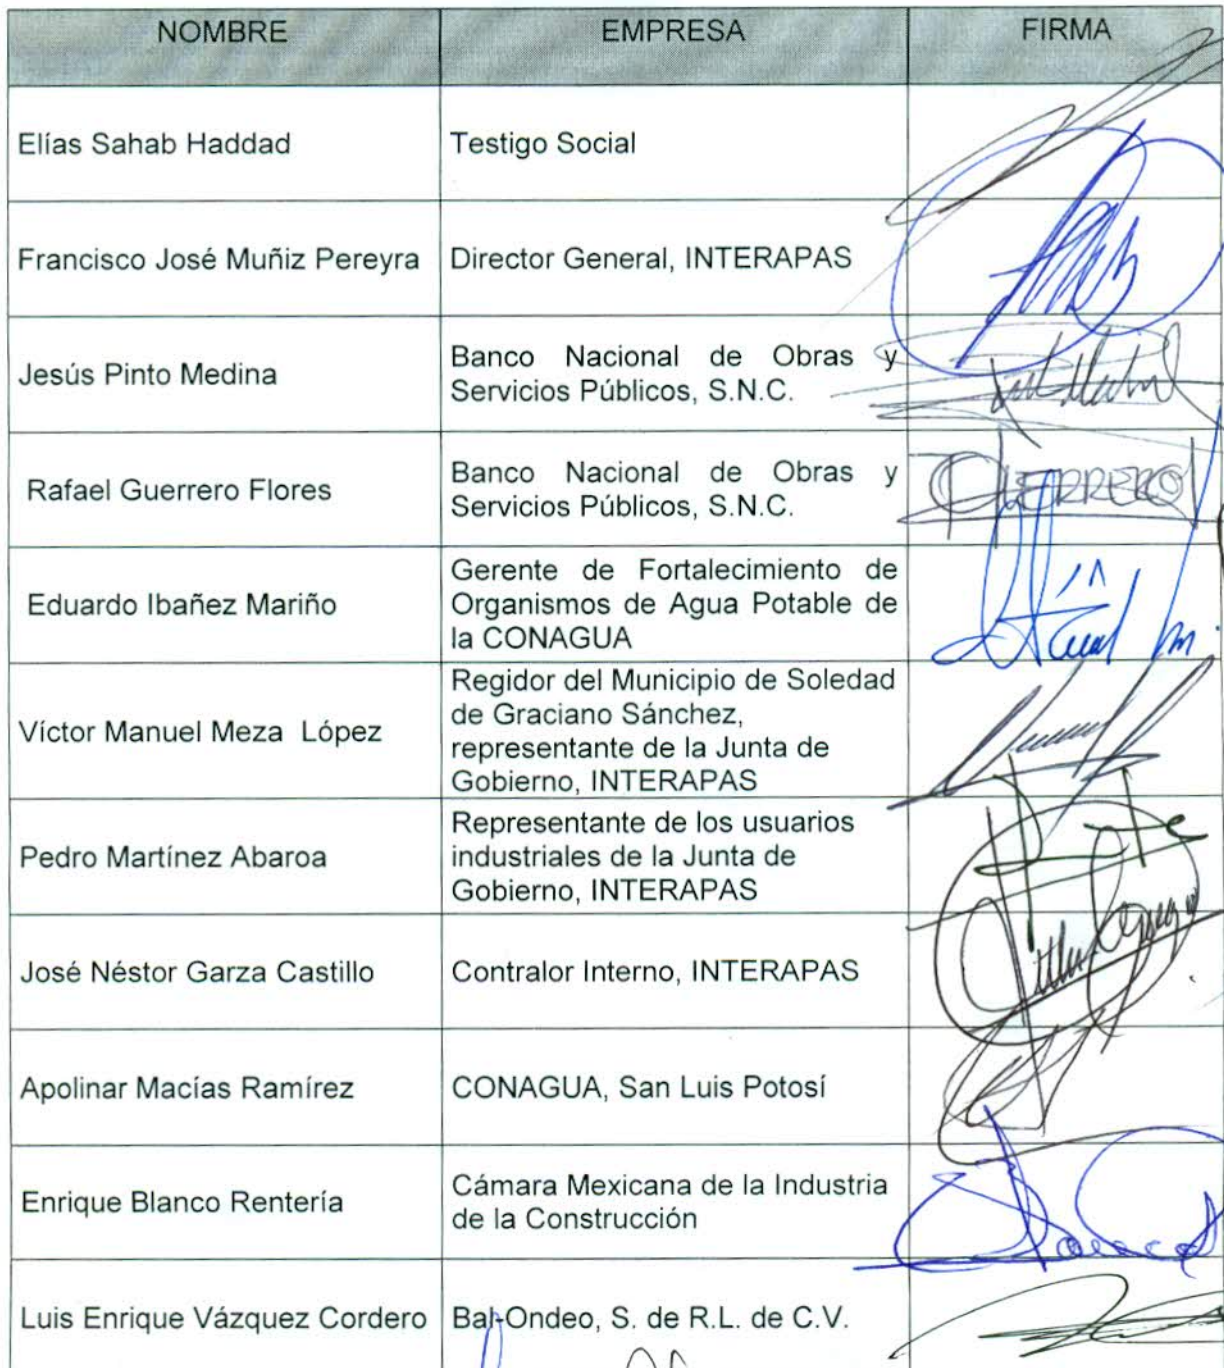 NOMBRE EMPRESA FIRMA
Elías Sahab Haddad Testigo Social
Francisco José Muñiz Pereyra Director General, INTERAPAS
Jesús Pinto Medina Banco Nacional de Obras y
Servicios Públicos, S.N.C.
Rafael Guerrero Flores Banco Nacional de Obras y
Servicios Públicos, S.N.C.
GUERRERO
Eduardo Ibañez Mariño Gerente de Fortalecimiento de
Organismos de Agua Potable de
la CONAGUA
Víctor Manuel Meza López Regidor del Municipio de Soledad
de Graciano Sánchez,
representante de la Junta de
Gobierno, INTERAPAS
Pedro Martínez Abaroa Representante de los usuarios
industriales de la Junta de
Gobierno, INTERAPAS
José Néstor Garza Castillo Contralor Interno, INTERAPAS
Apolinar Macías Ramírez CONAGUA, San Luis Potosí
Enrique Blanco Rentería Cámara Mexicana de la Industria
de la Construcción
Luis Enrique Vázquez Cordero Bal-Ondeo, S. de R.L. de C.V.